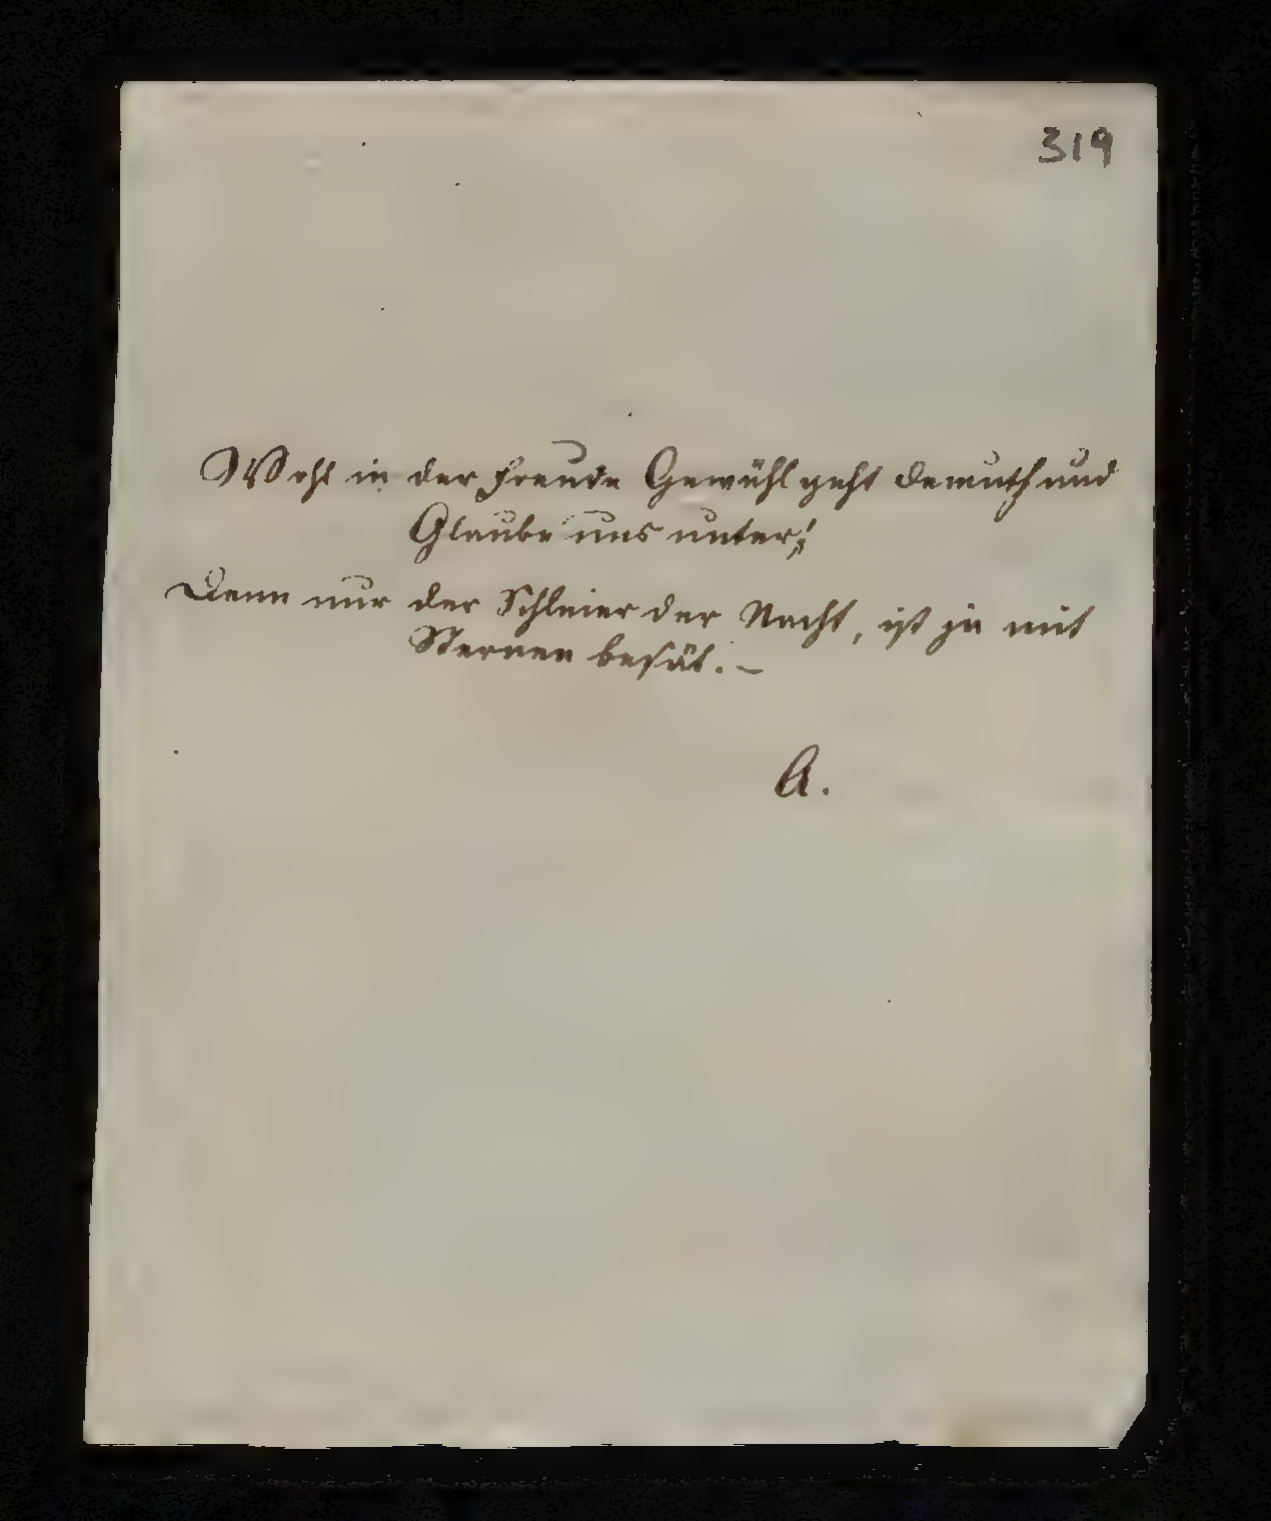 319
Wohl in der Freude Gewühl geht Demuth und
Glaube uns unter;
Denn nur der Schleier der Nacht, ist ja mit
Sternen besät. –
A.